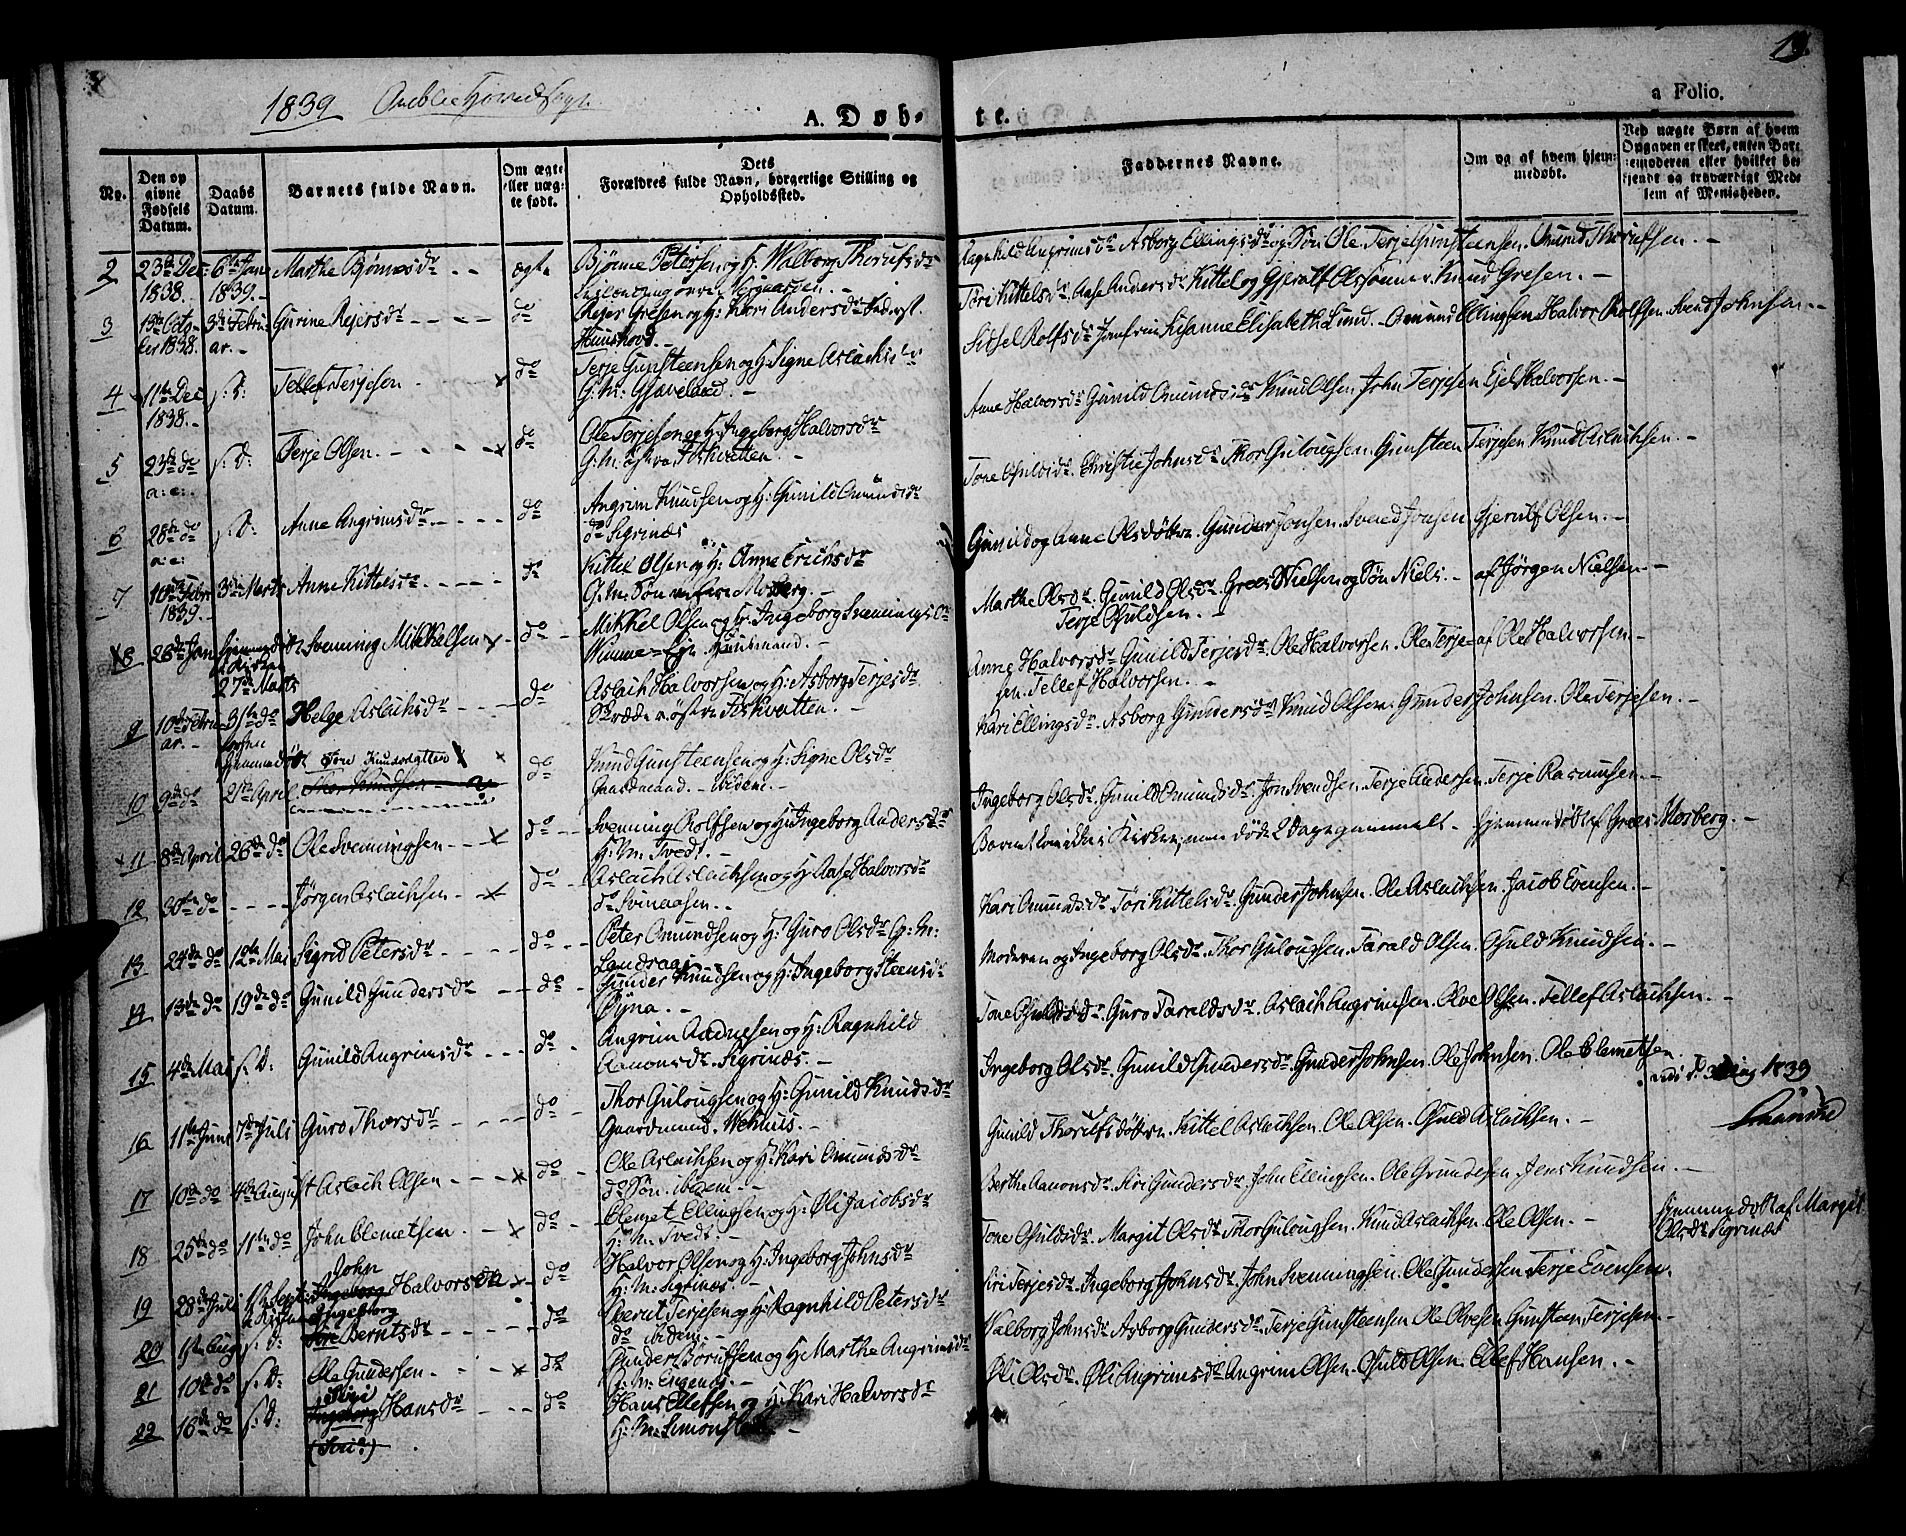 1839
19.
A. Døb-
te.
a Folio.
No.
Den op
givne
Fødsels
Datum.
Daabs
Datum.
Barnets fulde Navn.
Om ægte
eller uæg-
te født.
Dets
Forældres fulde Navn, borgerlige Stilling og
Opholdssted.
Faddernes Navne.
Om og af hvem hjem-
medøbt.
Ved uægte Børn af hvem
Opgaven er skeet, enten Bar-
nemoderen eller hvilket be-
kjendt og troværdigt Med-
lem af Menigheden.
2 23de Dec: 1838. 6te Jan 1839. Marthe Bjørnesdr ægt. Bjørne Petersen og H: Walborg Thorufsdr
Ragnhild Angrimsdr Asborg Ellingsdr og Søn Ole. Terje Gunsteensen. Omund Thorufsen.
3 13de Octo-ber 1838. 3die Februar. Gurine Reiersdr do Reier Gresen og H: Kari Andersdr
Töri Kittelsdr. Aase Andersdr Kittel og Gjerulf Olssønner. Knud Gresen.
4 11te Dec 1838. s: d: Tellef Terjesen × do Terje Gunsteensen og H: Signe Aslachsdr G: M: Gjaveland.
Sissel Rolfsdr Jomfru Susanne Elisabeth Lund. Omund Ellingsen Halvor Rolfsen. Svend Johnsen.
5 23de do a: c: s: d: Terje Olsen. × do Ole Terjesen og H: Ingeborg Halvorsdr G: M: østre Fiskvatten
Anne Halvorsdr Gunild Omundsdr Knud Olsen. John Terjesen Ejel Halvorsen.
6 28de do a: c: s: D: Anne Angrimsdr do Angrim Knudsen og H: Gunild Omundsdr do Sigrinæs
Tone Osuldsdr. Christie Johnsdr Thor Gulougsen. Gunsteen Terjesen Knud Aslachsen.
7 10de Febr 1839. 3die Marts Anne Kittelsdr do Kittel Olsen og H: Anne Erichsdr
Gunild og Anne Olsdøttre. Gunder Jonsen. Svend Jonsen Gjerulf Olsen.
8 26de Jan 27de Marts Svenning Mikkelsen × do Mikkel Olsen og H: Ingeborg Svenningsdr
Marthe Olsdr. Gunild Olsdr. Grees Nielsen og Søn Niels. af Jörgen Nielsen
Terje Osuldsen.
9 10de Februar. 31te do Helge Aslachsdr do Aslach Halvorsen og H: Asborg Terjesdr østre Fiskvatten.
Anne Halvorsdr Gunild Terjesdr. Ole Halvorsen. Ole Terje- af Ole Halvorsen.
sen. Tellef Halvorsen.
10 9de do 21de April Tone Knudsdatter × do Knud Gunsteensen og H: Signe Olsdr Gaardmand. ibidem.
Kari Ellingsdr. Asborg Gundersdr Knud Olsen. Gunder Johnsen. Ole Terjesen.
11 8de April 26de do Ole Svenningsen × do Svenning Rolfsen og H: Ingeborg Andersdr H: M: Tvedt.
Ingeborg Olsdr. Gunild Omundsdr Jon Svendsen. Terje Andersen. Terje Rasmusen.
Barnet kom ikke i Kirken, men døde 2 Dage gammelt. hjemmedøbt af Grees Mosberg.
12 30te do Jörgen Aslachsen × do Aslach Aslachsen og H: Aase Halvorsdr do Svenaasen.
13 24de do 12te Mai Sigrid Petersdr do Peter Omundsen og H: Guro Olsdr G: M: Landraas
Kari Omundsdr Töri Kittelsdr. Gunder Johnsen. Ole Aslachsen. Jacob Evensen.
14 13de do 19de do Gunild Gundersdr do Gunder Knudsen og H: Ingeborg Steensdr Øyna.
Moderen og Ingeborg Olsdr. Thor Gulougsen. Tarald Olsen. Osuld Knudsen.
15 4de Mai s: D: Gunild Angrimsdr do Angrim Andersen og H: Ragnhild Aanonsdr. Sigrinæs.
Tone Osuldsdr. Guro Taraldsdr. Aslach Angrimsen. Olve Olsen. Tellef Aslachsen.
16 11te Juni 7de Juli Guro Thorsdr do Thor Gulougsen og H: Gunild Knudsdr Gaardmand. Wehuus.
Ingeborg Olsdr. Gunild Gundersdr. Gunder Johnsen. Ole Johnsen. Ole Clemetsen.
1839
17 10de do 4de August Aslach Olsen × do Ole Aslachsen og H: Kari Omundsdr do Søn. ibidem.
Gunild Thorufsdøttre. Kittel Aslachsen. Ole Olsen. Osuld Aslachsen.
18 25de do 11te do John Clemetsen. × do Clemet Ellingsen og H: Øli Jacobsdr H: M: Tvedt.
Berthe Aanonsdr. Siri Gundersdr. John Ellingsen. Ole Gundersen. Jens Knudsen.
19 28de Juli John Halvorsen × do Halvor Olsen og H: Ingeborg Johnsdr H: M: Sigrinæs.
Tone Osuldsdr. Margit Olsdr Thor Guloughsen. Knud Aslachsen. Ole Olsen. hjemmedøbt af Margit Olsdr Sigrinæs
20 1ste Aug s: d: Ingeborg Berntsdr do Bernt Terjesen og H: Ragnhild Petersdr do ibidem.
Siri Terjesdr. Ingeborg Johnsdr. John Svenningsen. Ole Gundersen. Terje Evensen.
21 10de do s: D: Ole Gundersen. × do Gunder Børufsen og H: Marthe Angrimsdr H: M: Engenes.
Walborg Johnsdr. Asborg Gundersdr. Terje Gunsteensen Ole Olvesen Gunsteen Terjesen.
22 16de do s: d: Siri Hansdr do Hans Ellefsen og H: Kari Halvorsdr H: M:
(Siri)
Øli Olsdr. Øli Angrimsdr Angrim Olsen. Osuld Olsen. Ellef Hansen.